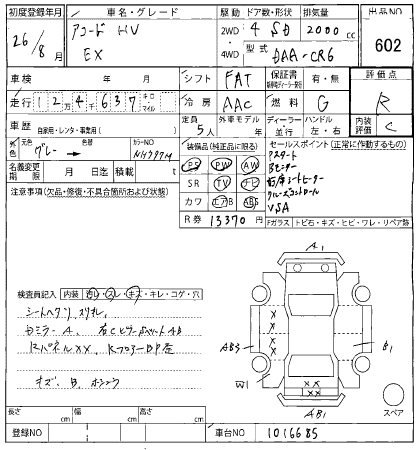 初度登録年月 車名・グレード 駆動 ドア数・形状 排気量 出品NO
26/8月 アコード HV 2WD 4 SD 2000 cc
EX 4WD 型式 DAA-CR6 602
車検 年 月 シフト FAT 保証書 有・無 評価点
走行 12万4千637 キロ マイル 冷房 AAC 燃料 G R
車歴 自家用・レンタ・事業用( ) 定員 5人 外車モデル 年 ディーラー 並行 ハンドル 左・右 内装評価 C
外色 元色 グレー → 色替 カラーNO NH797M 装備品(純正品に限る) セールスポイント(正常に作動するもの)
名義変更期限 月 日迄 積載 t PS PW AW
注意事項(欠品・修復・不具合箇所および状態) SR TV ナビ
カワ エアB ABS
R券 13370円
Pスタート
Bモニター
クルーズコントロール
VSA
Fガラス・トビ石・キズ・ヒビ・ワレ・リペア跡
A1
検査員記入 内装 汚レ・スレ・キズ・キレ・コゲ・穴
シートヘタリ スリキレ
Rパネル XX、Rフロアー
AB3
B1
W1
キズ、B
XX
AB1
スペア
長さ cm 幅 cm 高さ cm
登録NO 車台NO 1016685